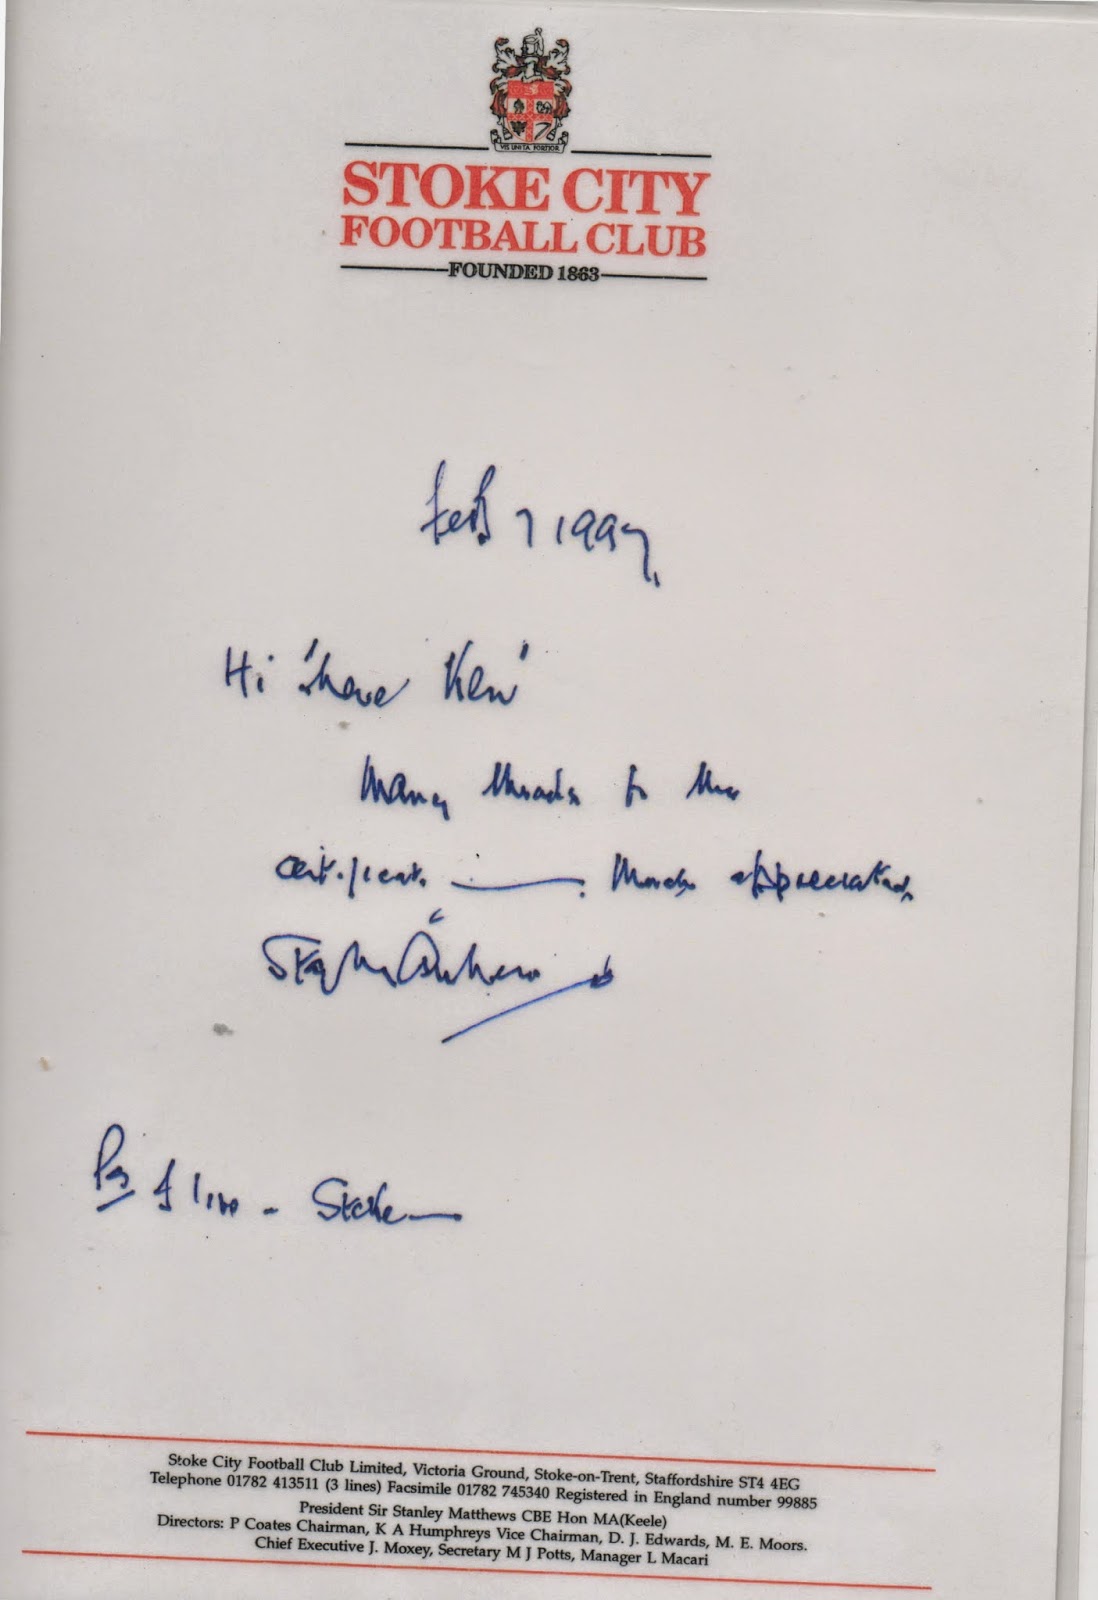 VIS UNITA FORTIOR
STOKE CITY
FOOTBALL CLUB
FOUNDED 1863
Feb 7 1997.
Hi 'Shave Ken'
Many thanks for the
certificate — Much appreciated,
Ps I live - Stoke —
Stoke City Football Club Limited, Victoria Ground, Stoke-on-Trent, Staffordshire ST4 4EG
Telephone 01782 413511 (3 lines) Facsimile 01782 745340 Registered in England number 99885
President Sir Stanley Matthews CBE Hon MA(Keele)
Directors: P Coates Chairman, K A Humphreys Vice Chairman, D. J. Edwards, M. E. Moors.
Chief Executive J. Moxey, Secretary M J Potts, Manager L Macari